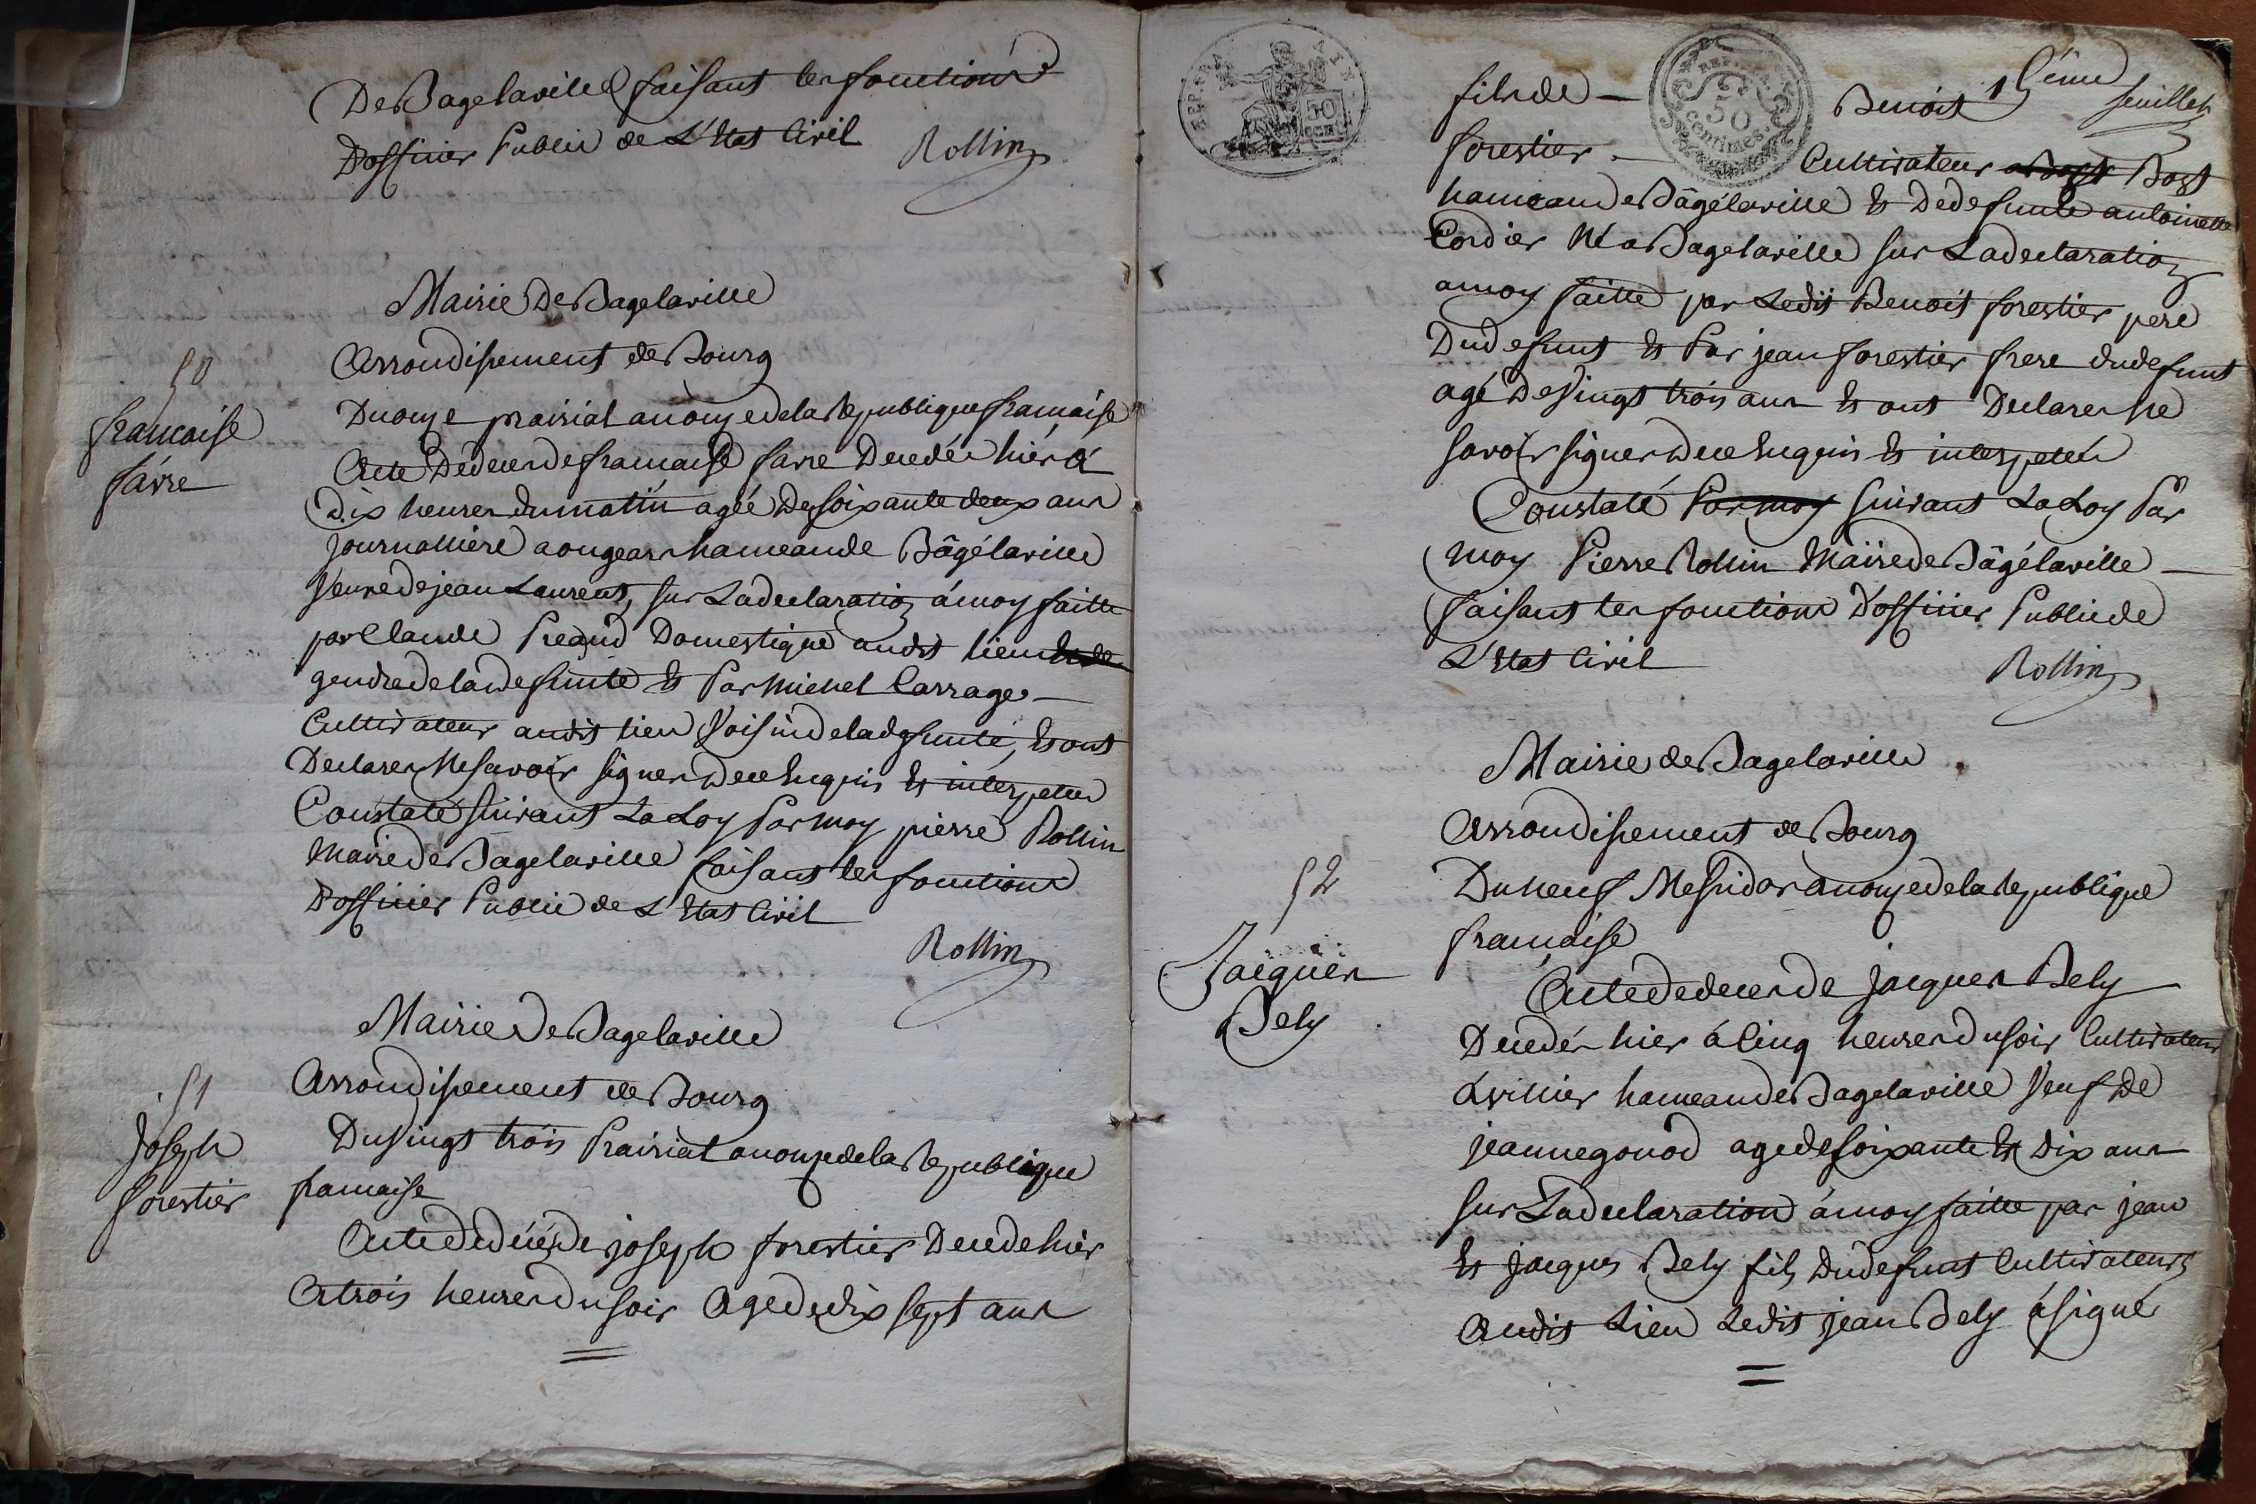 De Bagelaville faisant les fonctions
D'officier Public de L'Etat Civil
Rollin
Mairie De Bagelaville
Arrondisement de Bourg
50
francoise
favre
Du onze prairial an onze de la Republique francaise
Acte De deces de francoise favre Decedée hier à
Dix heures du matin agéé De soixante deux ans
journalliere a ongears hameau de Bâgélaville
veuve de jean Laurent, sur La declaration á moy faitte
par Claude Pread Domestique audit lieu
gendre de la defunte Et Par Michel Carrage
Cultivateur audit lieu Voisin de la defunte, Et ont
Declarer Ne savoir signer De ce Enquis Et interpeller
Constaté suivant La Loy Par moy pierre Rollin
Maire de Bagelaville faisant les fonctions
D'officier Public de L'Etat Civil
Rollin
Mairie De Bagelaville
Arrondisement de Bourg
51
Joseph
forestier
Du vingt trois Prairial an onze de la Republique
francaise
Acte De décés de joseph forestier Decede hier
A trois heures du soir Agé de dix sept ans
REP. FRA
50
CEN
REP. FRA.
50
centimes.
15éme
feuillet
fils de — Benoit
forestier — Cultivateur a Bost Bost
hameau de Bâgélaville Et De defunte antoinette
Cordier Né a Bagelaville sur La declaration
a moy faitte par Ledit Benoit forestier pere
Du defunt Et Par jean forestier frere du defunt
agé De vingt trois ans Et ont Declarer Ne
savoir signer De ce Enquis Et interpeller
Constaté Par moy suivant La Loy Par
moy Pierre Rollin Maire de Bâgélaville —
faisant les fonctions D'officier Public de
L'Etat Civil
Rollin
Mairie de Bagelaville
Arrondisement de Bourg
52
Jacques
Bely
Du neuf Messidor an onze de la Republique
francaise
Acte de deces de jacques Bely
Decedér hier á Cinq heures du soir Cultivateur
á villier hameau de Bagelaville Veuf De
jeanne gonod age de soixante Et Dix ans
sur La declaration á moy faitte par jean
Et jacques Bely fils Du defunt Cultivateurs
Audit Lieu Ledit jean Bely á signér